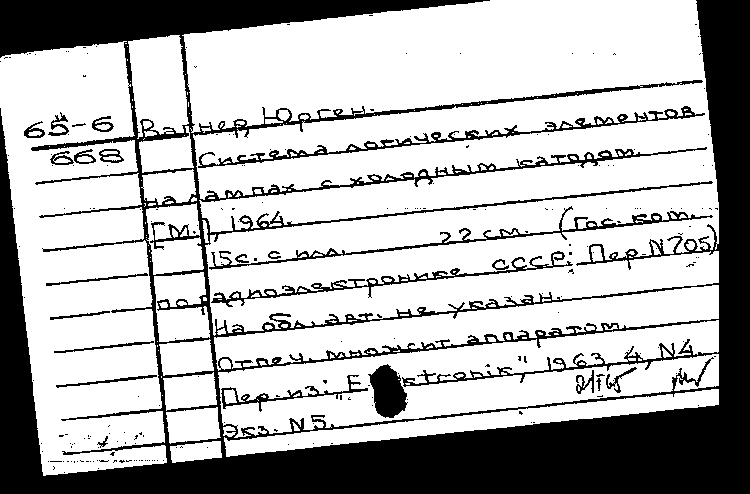 65-6 Вагнер, Юрген.
668 Система логических элементов
на лампах с холодным катодом.
[М.], 1964.
15с. с илл. 22 см. (Гос. ком.
по радиоэлектронике СССР: Пер. N705)
На обл. авт. не указан.
Отпеч. множит. аппаратом.
Пер. из: "E ktronik", 1963, 4, N4.
Экз. N5.